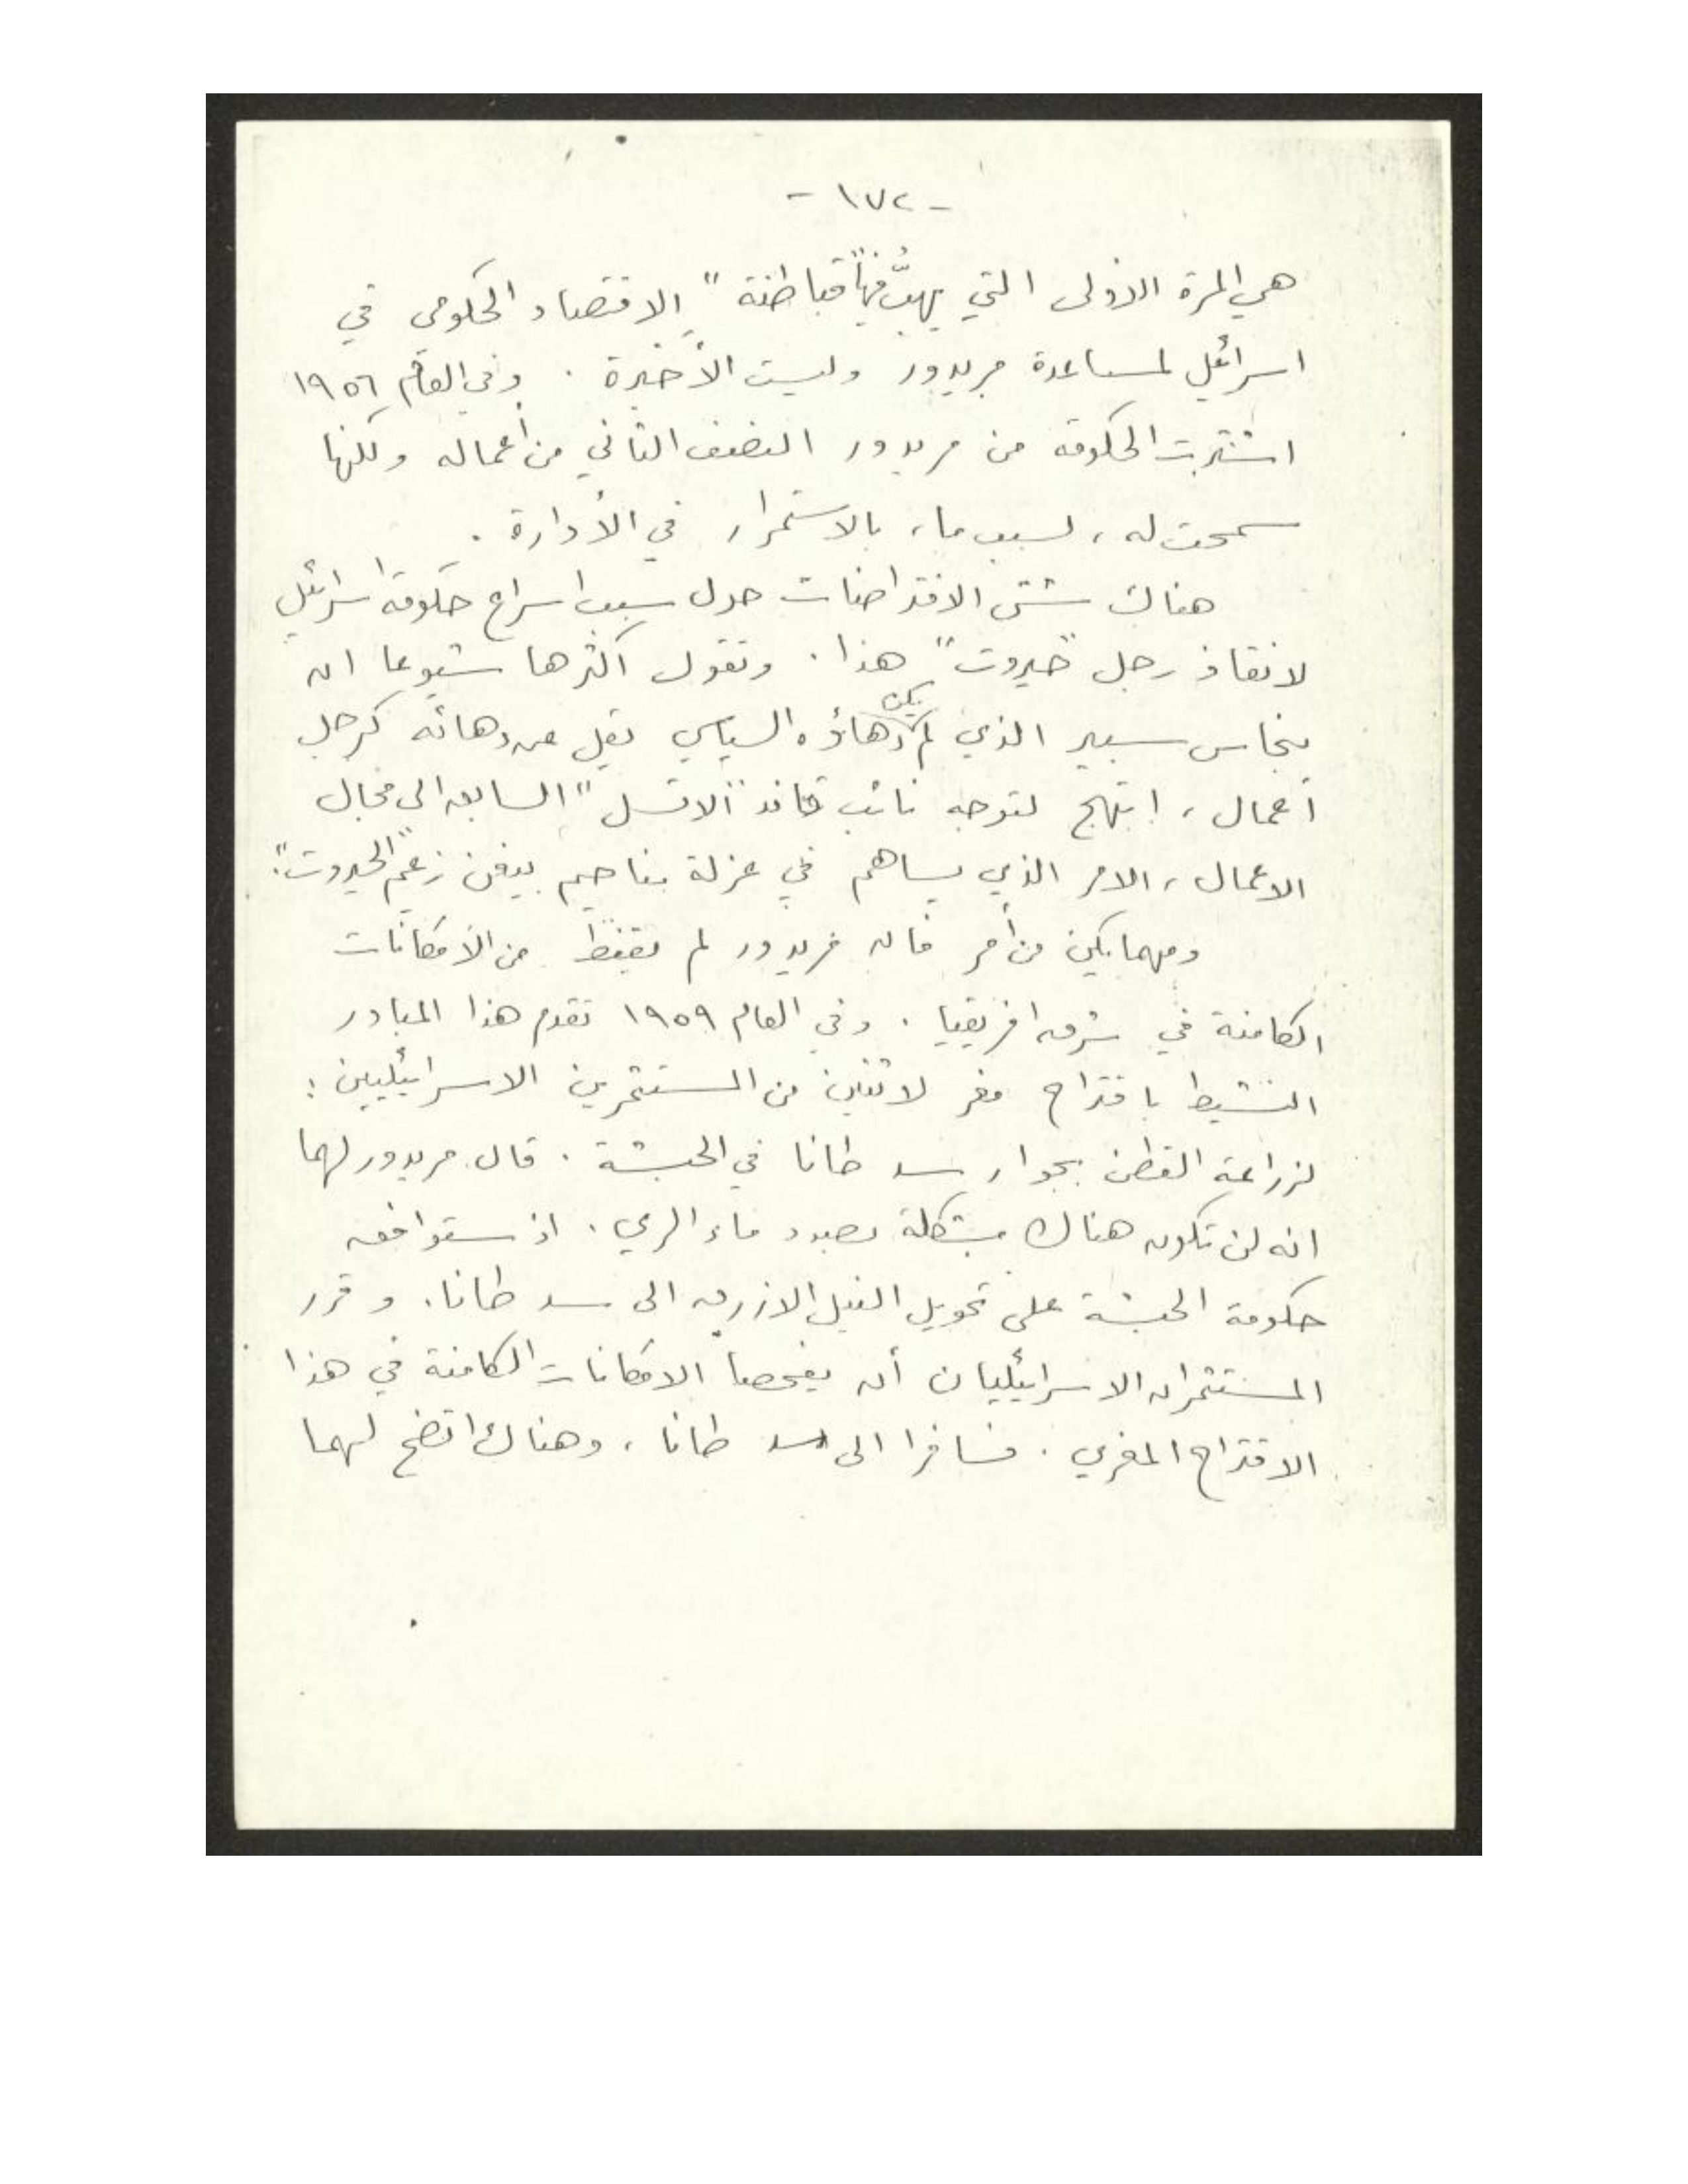 - ١٧٢ -
هي المرة الأولى التي يهبّ فيها "قباطنة" الاقتصاد الحكومي في
اسرائيل لمساعدة مريدور وليست الأخيرة . وفي العام ١٩٥٦
اشترت الحكومة من مريدور النصف الثاني من أعماله ولكنها
سمحت له ، لسبب ما ، بالاستمرار في الأدارة .
هناك شتى الافتراضات حول سبب اسراع حكومة اسرائيل
لانقاذ رجل "حيروت" هذا . وتقول أكثرها شيوعا ان
بنحاس سبير الذي لم يكن دهاؤه السياسي يقل عن دهائه كرجل
أعمال ، ابتهج لتوجه نائب قائد "الاتسل" السابق الى مجال
الاعمال ، الامر الذي يساهم في عزلة مناحيم بيغن زعيم "الحيروت".
ومهما يكن من أمر فان مريدور لم يقنط من الأمكانات
الكامنة في شرق افريقيا . وفي العام ١٩٥٩ تقدم هذا المبادر
النشيط باقتراح مغر لاثنين من المستثمرين الاسرائيليين :
لزراعة القطن بجوار سد طانا في الحبشة . قال مريدور لهما
انه لن تكون هناك مشكلة بصدد ماء الري . اذ ستوافق
حكومة الحبشة على تحويل النيل الازرق الى سد طانا . وقرر
المستثمران الاسرائيليان أن يفحصا الامكانات الكامنة في هذا
الاقتراح المغري . فسافرا الى سد طانا ، وهناك اتضح لهما